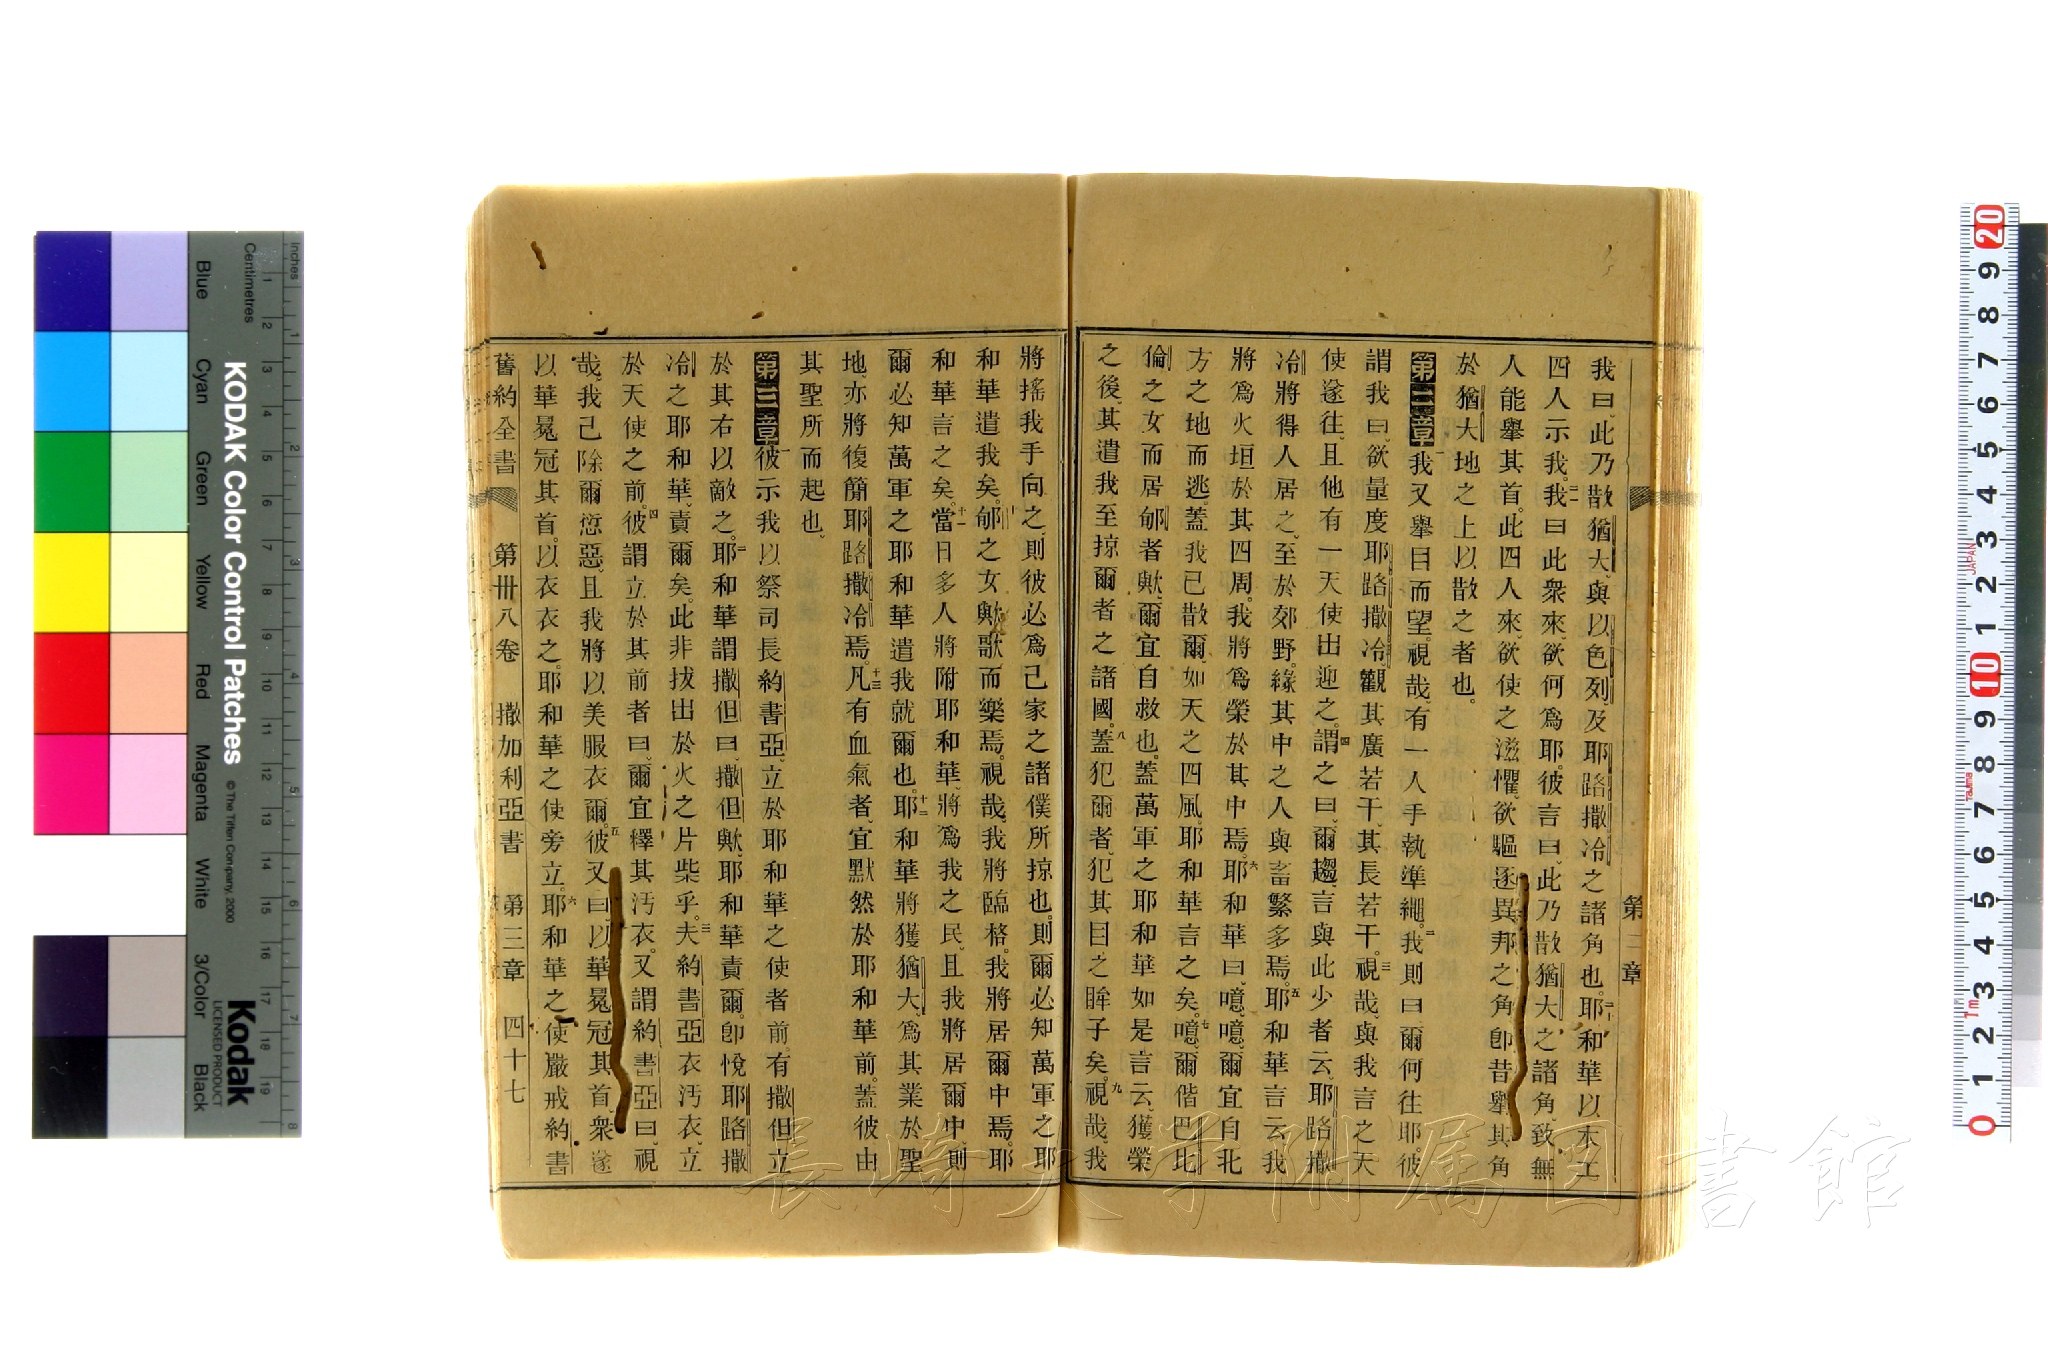 我曰、此乃散猶大、與以色列、及耶路撒冷之諸角也。二十耶和華以木工
四人示我。二一我曰此衆來、欲何爲耶。彼言曰、此乃散猶大之諸角、致無
人能舉其首。此四人來、欲使之滋懼、欲驅逐異邦之角、卽昔舉其角
於猶大地之上以散之者也。
第二章一我又舉目而望。視哉、有一人手執準繩。二我則曰爾何往耶。彼
謂我曰、欲量度耶路撒冷觀其廣若干、其長若干。三視哉、與我言之天
使遂往、且他有一天使出迎之。四謂之曰、爾趨、言與此少者云、耶路撒
冷將得人居之、至於郊野。緣其中之人與畜繁多焉。五耶和華言云我
將爲火垣於其四周。我將爲榮於其中焉。六耶和華曰、噫、噫、爾宜自北
方之地而逃。蓋我已散爾、如天之四風。耶和華言之矣。七噫、爾偕巴比
倫之女而居郇者歟、爾宜自救也。蓋萬軍之耶和華如是言云、獲榮
之後、其遣我至掠爾者之諸國。八蓋犯爾者、犯其目之眸子矣。九視哉、我
將搖我手向之、則彼必爲己家之諸僕所掠也。則爾必知萬軍之耶
和華遣我矣。十郇之女歟歌而樂焉。視哉、我將臨格。我將居爾中焉。耶
和華言之矣。十一當日多人將附耶和華、將爲我之民、且我將居爾中、則
爾必知萬軍之耶和華遣我就爾也。十二耶和華將獲猶大、爲其業於聖
地、亦將復簡耶路撒冷焉。十三凡有血氣者、宜默然於耶和華前。蓋彼由
其聖所而起也。
第三章一彼示我以祭司長約書亞、立於耶和華之使者前。有撒但立
於其右以敵之。二耶和華謂撒但曰、撒但歟、耶和華責爾。卽悅耶路撒
冷之耶和華、責爾矣。此非拔出於火之片柴乎。三夫約書亞衣汚衣、立
於天使之前。四彼謂立於其前者曰、爾宜釋其汚衣。又謂約書亞曰、視
哉、我已除爾愆惡、且我將以美服衣爾。五彼又曰、以華冕冠其首。衆遂
以華冕冠其首。以衣衣之。耶和華之使旁立。六耶和華之使嚴戒約書
舊約全書 第卅八卷 撒加利亞書 第三章 四十七
第二章
KODAK Color Control Patches
© The Tiffen Company, 2000
Kodak
LICENSED PRODUCT
Inches
Centimetres
Blue
Cyan
Green
Yellow
Red
Magenta
White
3/Color
Black
JAPAN
長崎大学附属図書館